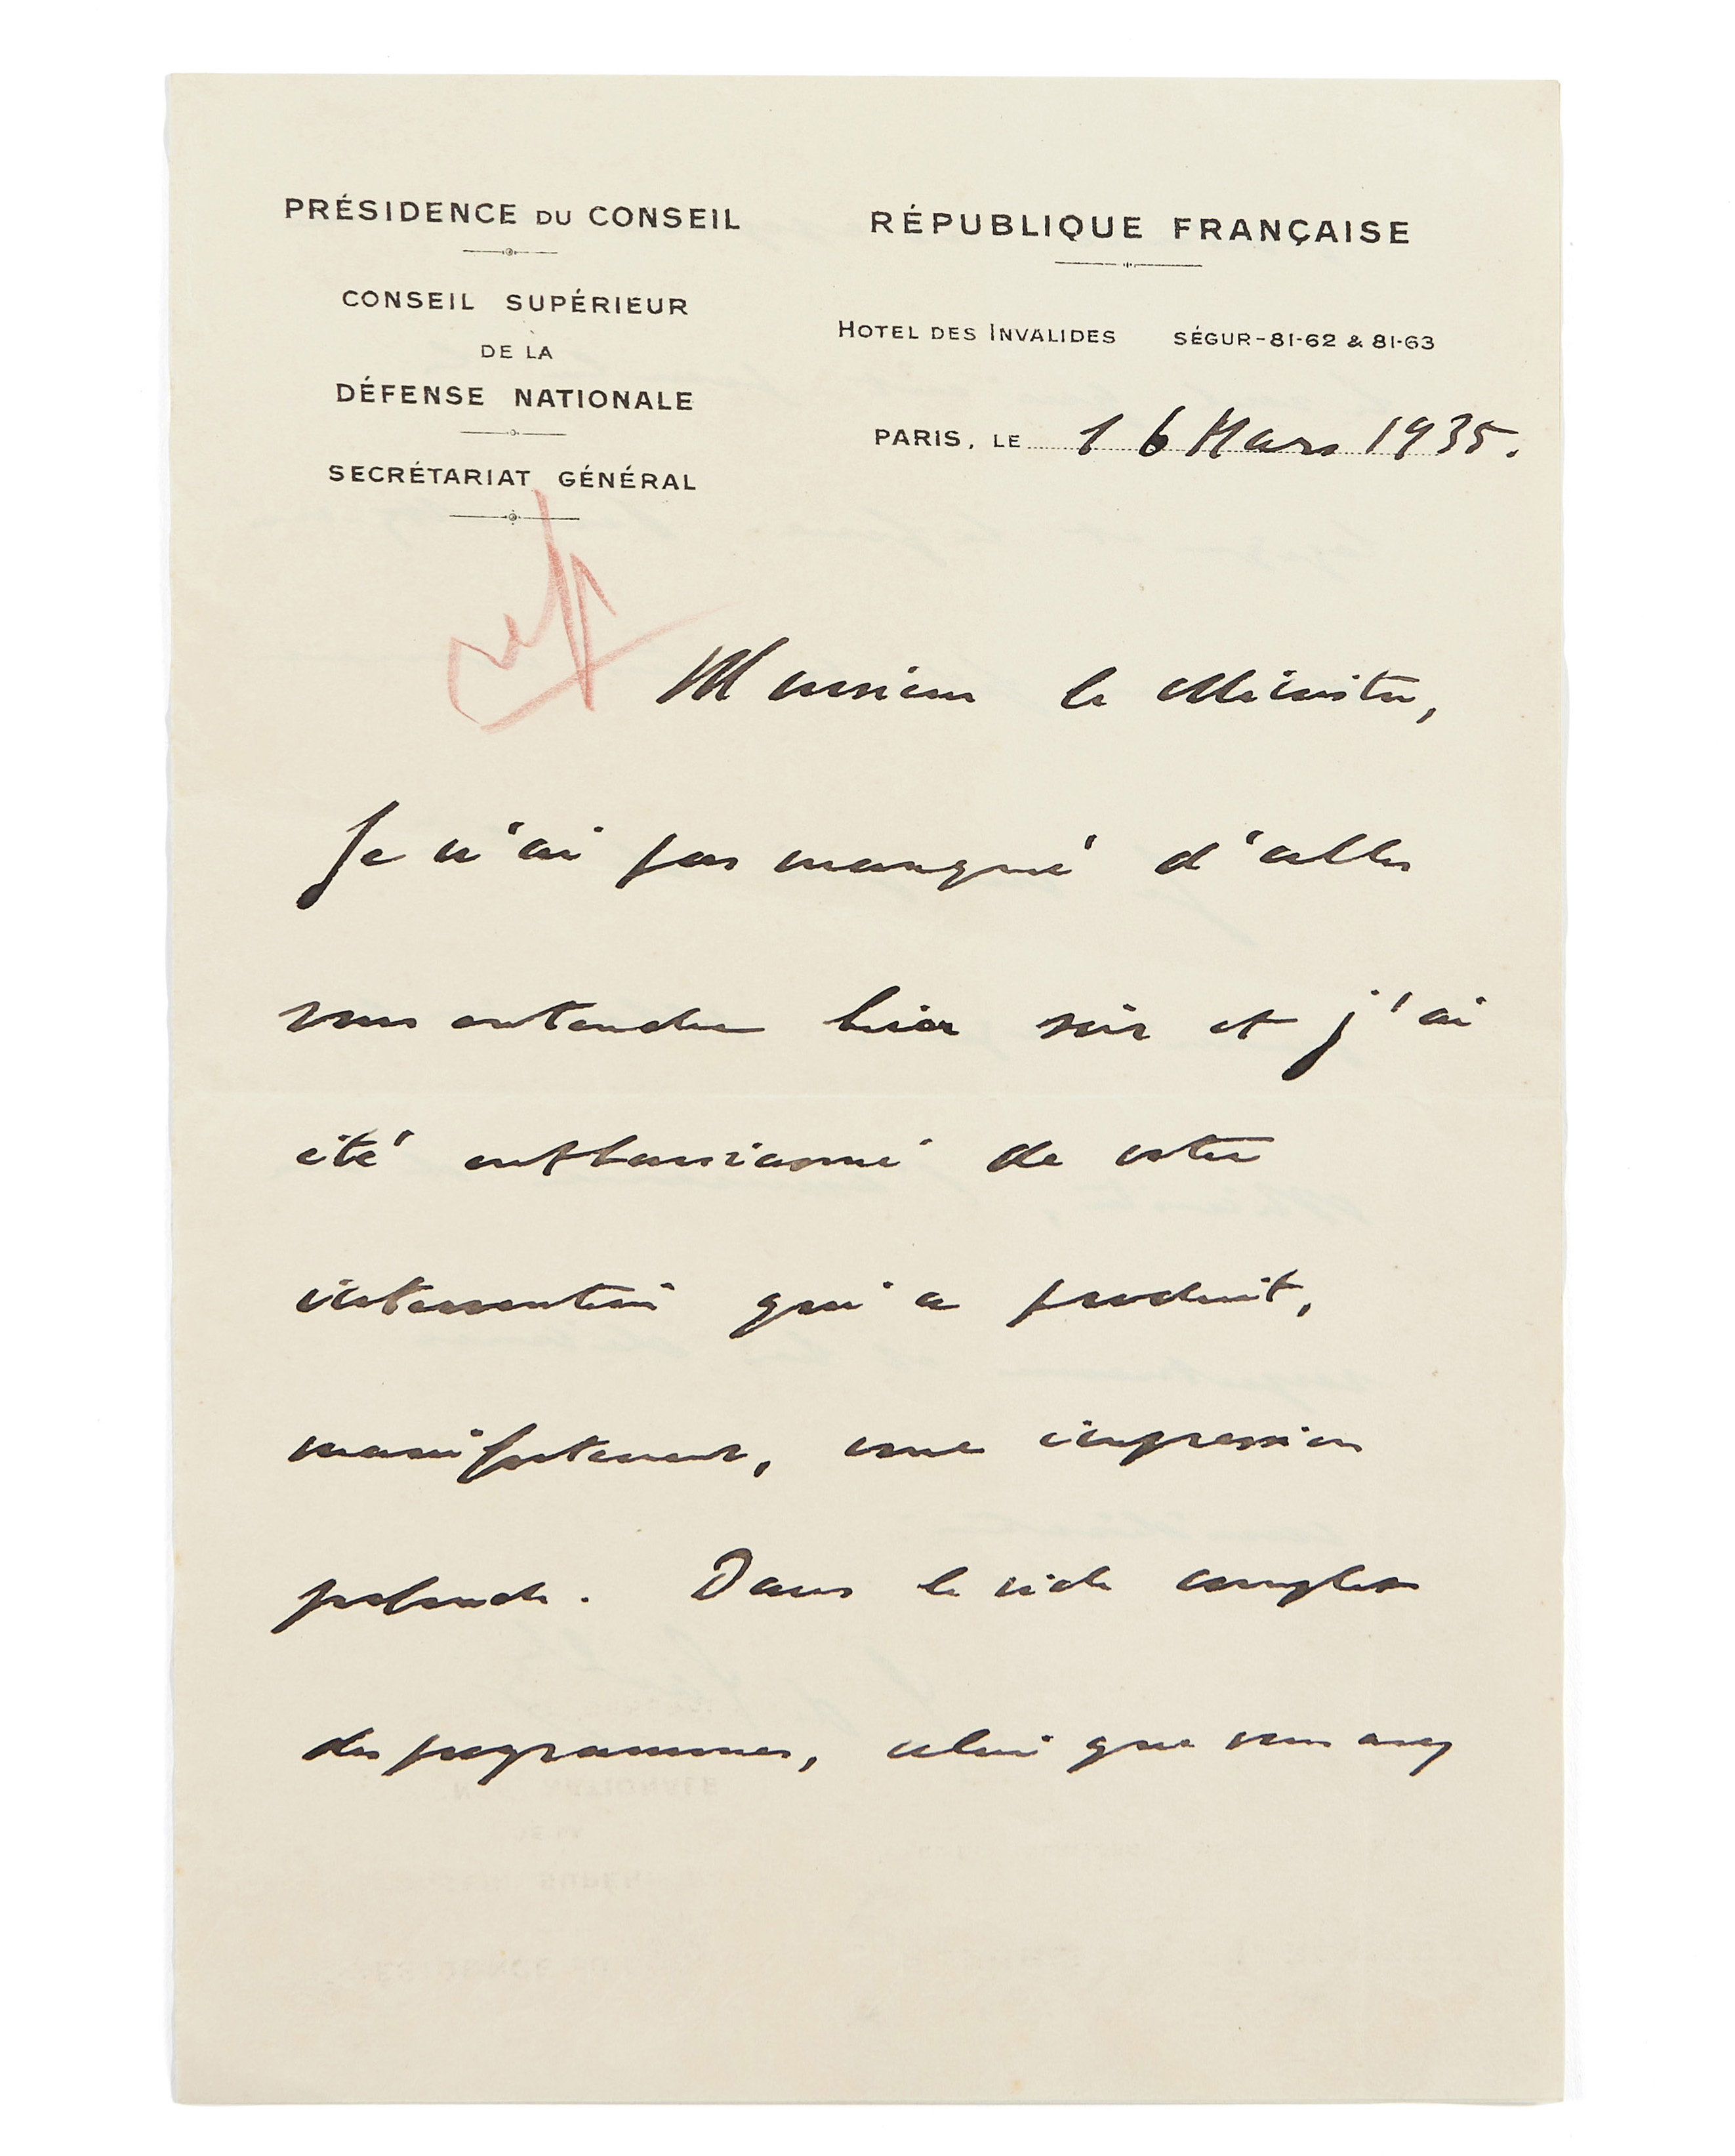 PRÉSIDENCE DU CONSEIL
CONSEIL SUPÉRIEUR
DE LA
DÉFENSE NATIONALE
SECRÉTARIAT GÉNÉRAL
RÉPUBLIQUE FRANÇAISE
HOTEL DES INVALIDES SÉGUR-81-62 & 81-63
PARIS, LE 16 Mars 1935.
Monsieur le Ministre,
Je n'ai pas manqué d'aller
vous entendre hier soir et j'ai
été enthousiasmé de votre
intervention qui a produit,
manifestement, une impression
profonde. Dans le vide complet
des programmes, celui que vous avez